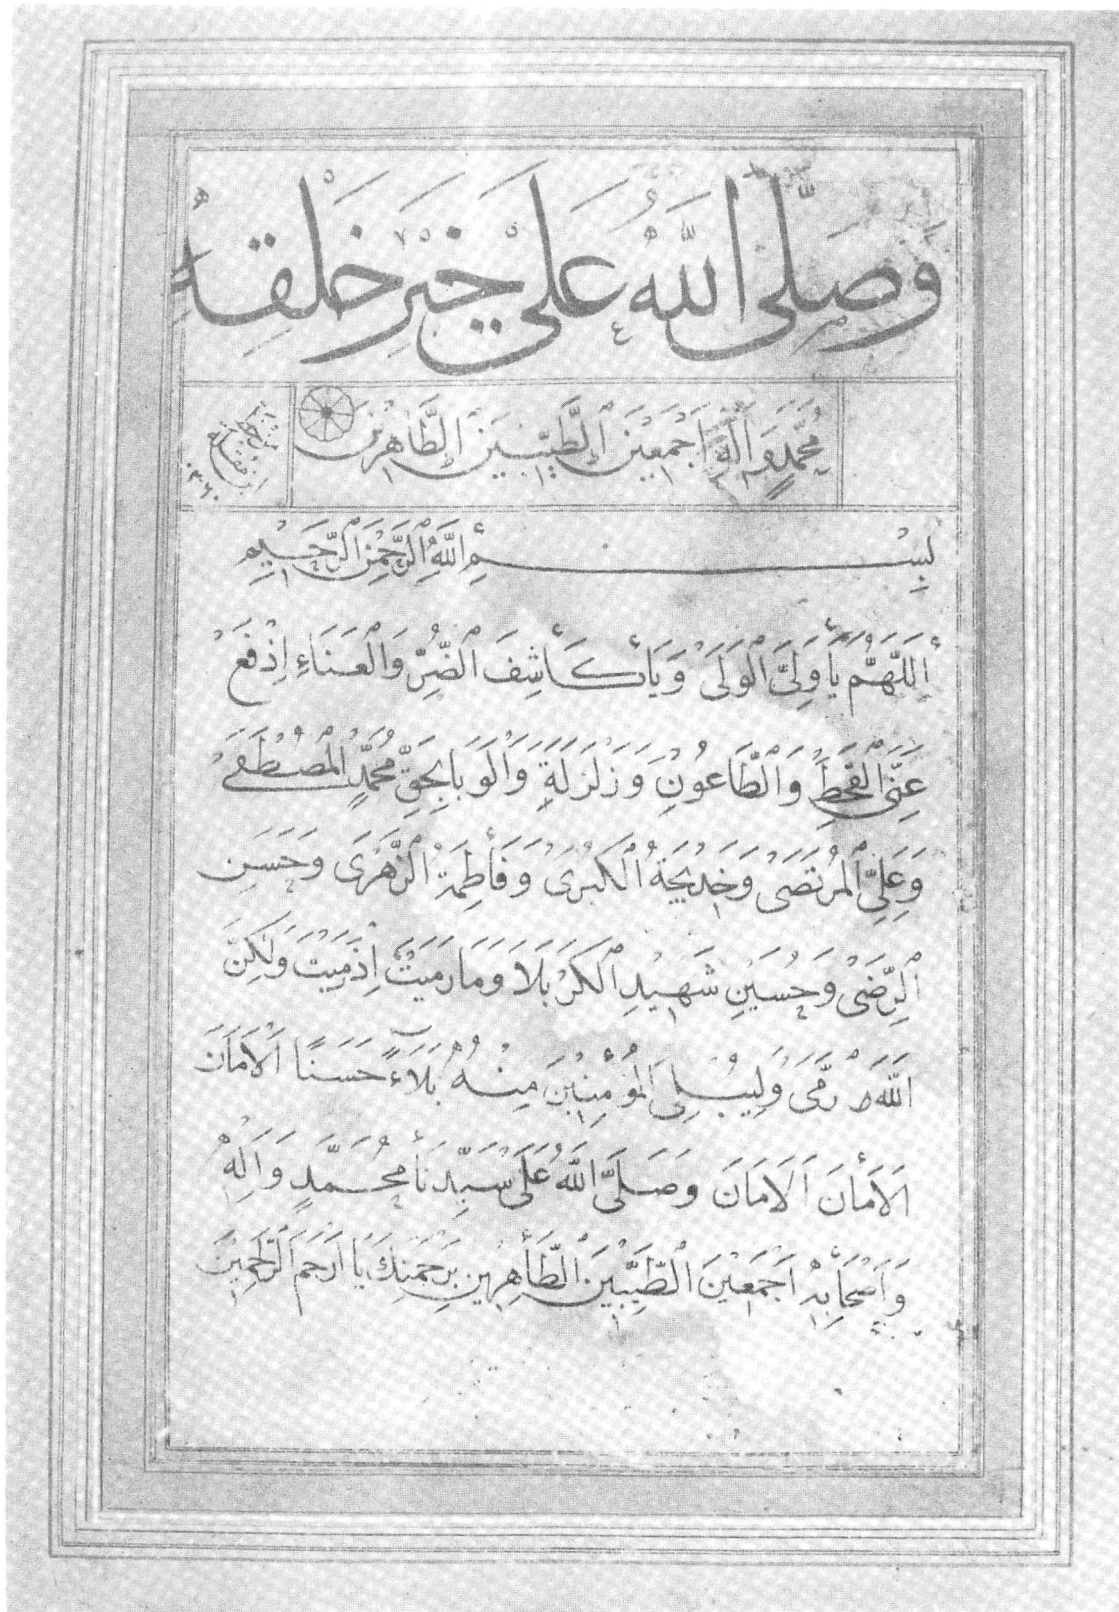 وَصَلَّى اللَّهُ عَلَى خَيْرِ خَلْقِهِ
مُحَمَّدٍ وَاٰلِهِ اَجْمَعِينَ الطَّيِّبِينَ الطَّاهِرِينَ
بِسْمِ اللَّهِ الرَّحْمٰنِ الرَّحِيمِ
أَللَّهُمَّ يَا وَلِىَّ الْوَلَى وَيَا كَاشِفَ الضُّرِّ وَالْعَنَاءِ اِدْفَعْ
عَنِّى الْقَحْطَ وَالطَّاعُونِ وَزَلْزَلَةِ وَالْوَبَا بِحَقِّ مُحَمَّدٍ الْمُصْطَفَى
وَعَلِىِّ الْمُرْتَضَى وَخَدِيجَةُ الْكُبْرَى وَفَاطِمَةْ الزَّهْرَى وَحَسَنِ
الرِّضَى وَحُسَيْنِ شَهِيدِ الْكَرْبَلَا وَمَا رَمَيْتَ اِذْ رَمَيْتَ وَلٰكِنَّ
اللَّهَ رَمَى وَلِيُبْلِىَ الْمُؤْمِنِينَ مِنْهُ بَلَآءً حَسَنًا اَلْاَمَانَ
اَلْاَمَانَ اَلْاَمَانَ وَصَلَّى اللَّهُ عَلَى سَيِّدِنَا مُحَمَّدٍ وَاٰلِهِ
وَاَصْحَابِهِ اَجْمَعِينَ الطَّيِّبِينَ الطَّاهِرِينَ بِرَحْمَتِكَ يَا اَرْحَمَ الرَّاحِمِينَ